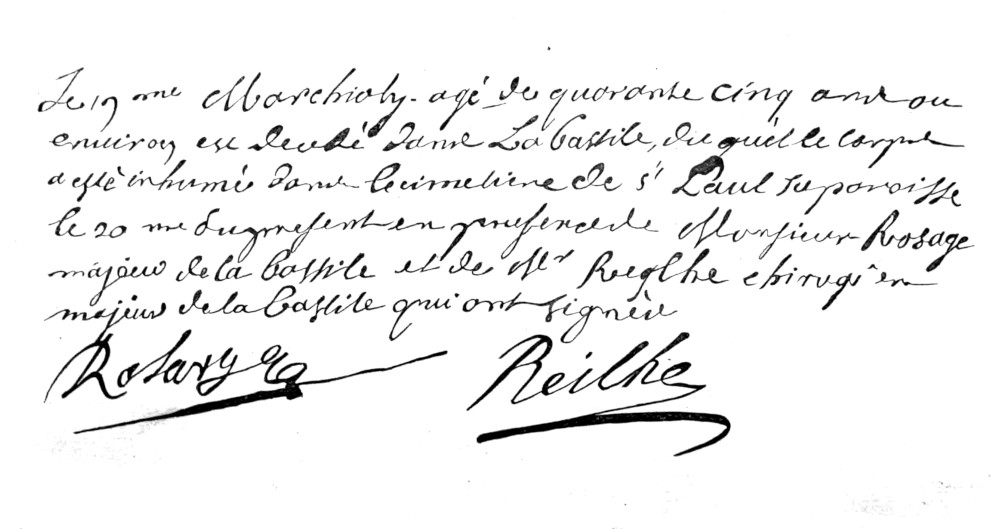 Le 19 me Marchioly agé de quarante cinq ans ou
environ est decedé dans La bastile, du quel le corps
a esté inhumé dans le cimetiere de St Paul sa paroisse
le 20 me du present en presence de Monsieur Rosage
majeur de la bastile et de Mr Reglhe chirugien
majeur de la bastile qui ont signée
Rosarges
Reilhe